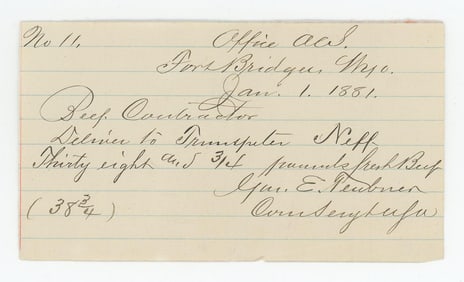 No 11.
Office A.C.S.
Fort Bridger, Wyo.
Jan. 1. 1881.
Beef Contractor
Deliver to Trumpeter Neff
Thirty eight and 3/4 pounds fresh Beef
E. Teubner
(38 3/4)
Com Sergt USA